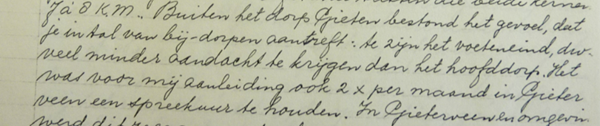 7 à 8 K.M.. Buiten het dorp Gieten bestond het gevoel, dat
je in tal van bij-dorpen aantreft: te zijn het voeteneind, dus
veel minder aandacht te krijgen dan het hoofddorp. Het
was voor mij aanleiding ook 2 x per maand in Gieter-
veen een spreekuur te houden. In Gieterveen en omgevin